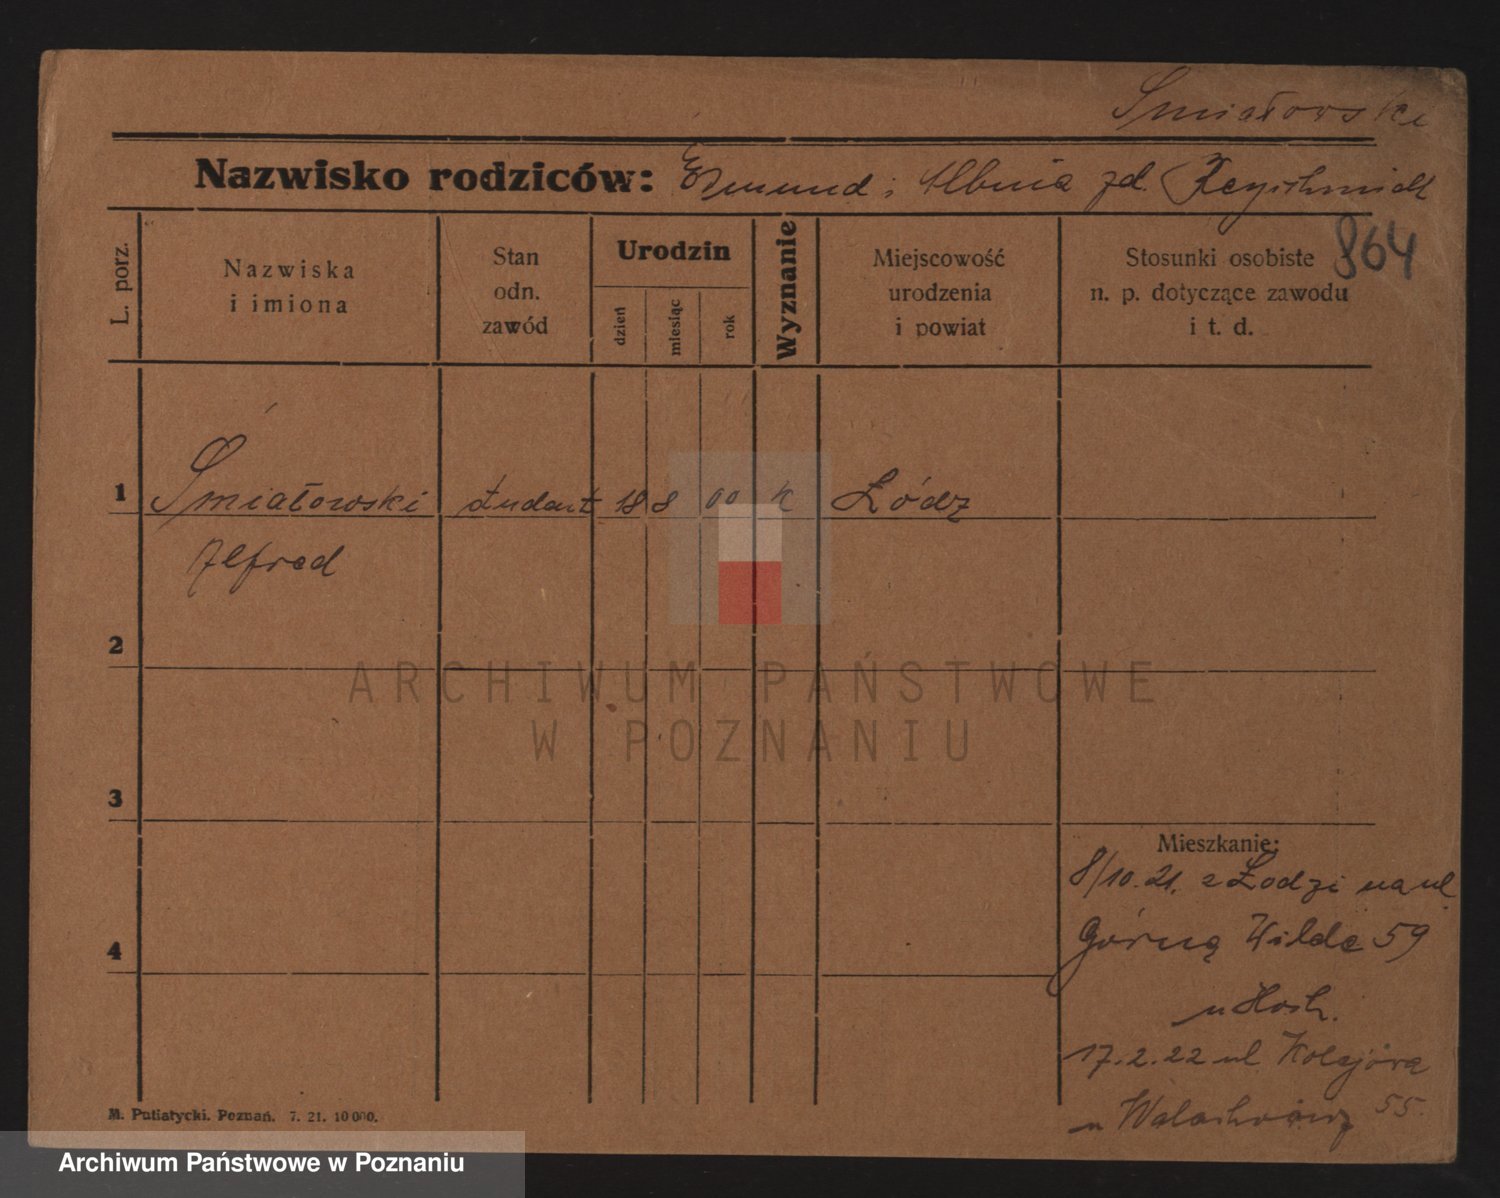 Śmiałowski
Nazwisko rodziców: Edmund i Albina zd.
864
L. porz.
Nazwiska
i imiona
Stan
odn.
zawód
Urodzin
dzień
miesiąc
rok
Wyznanie
Miejscowość
urodzenia
i powiat
Stosunki osobiste
n. p. dotyczące zawodu
i t. d.
1 Śmiałowski student 18 8 00 k Łódz
Alfred
2
3
4
Mieszkanie:
8/10.21. z Łodzi na ul
Górną Wildę 59
u
17.2.22 ul Kolejową
u 55.
M. Putiatycki. Poznań. 7. 21. 10 000.
ARCHIWUM PAŃSTWOWE
W POZNANIU
Archiwum Państwowe w Poznaniu